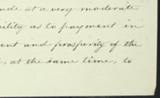 nds at a very moderate
ility as to payment in
ent and prosperity of the
, at the same time, to